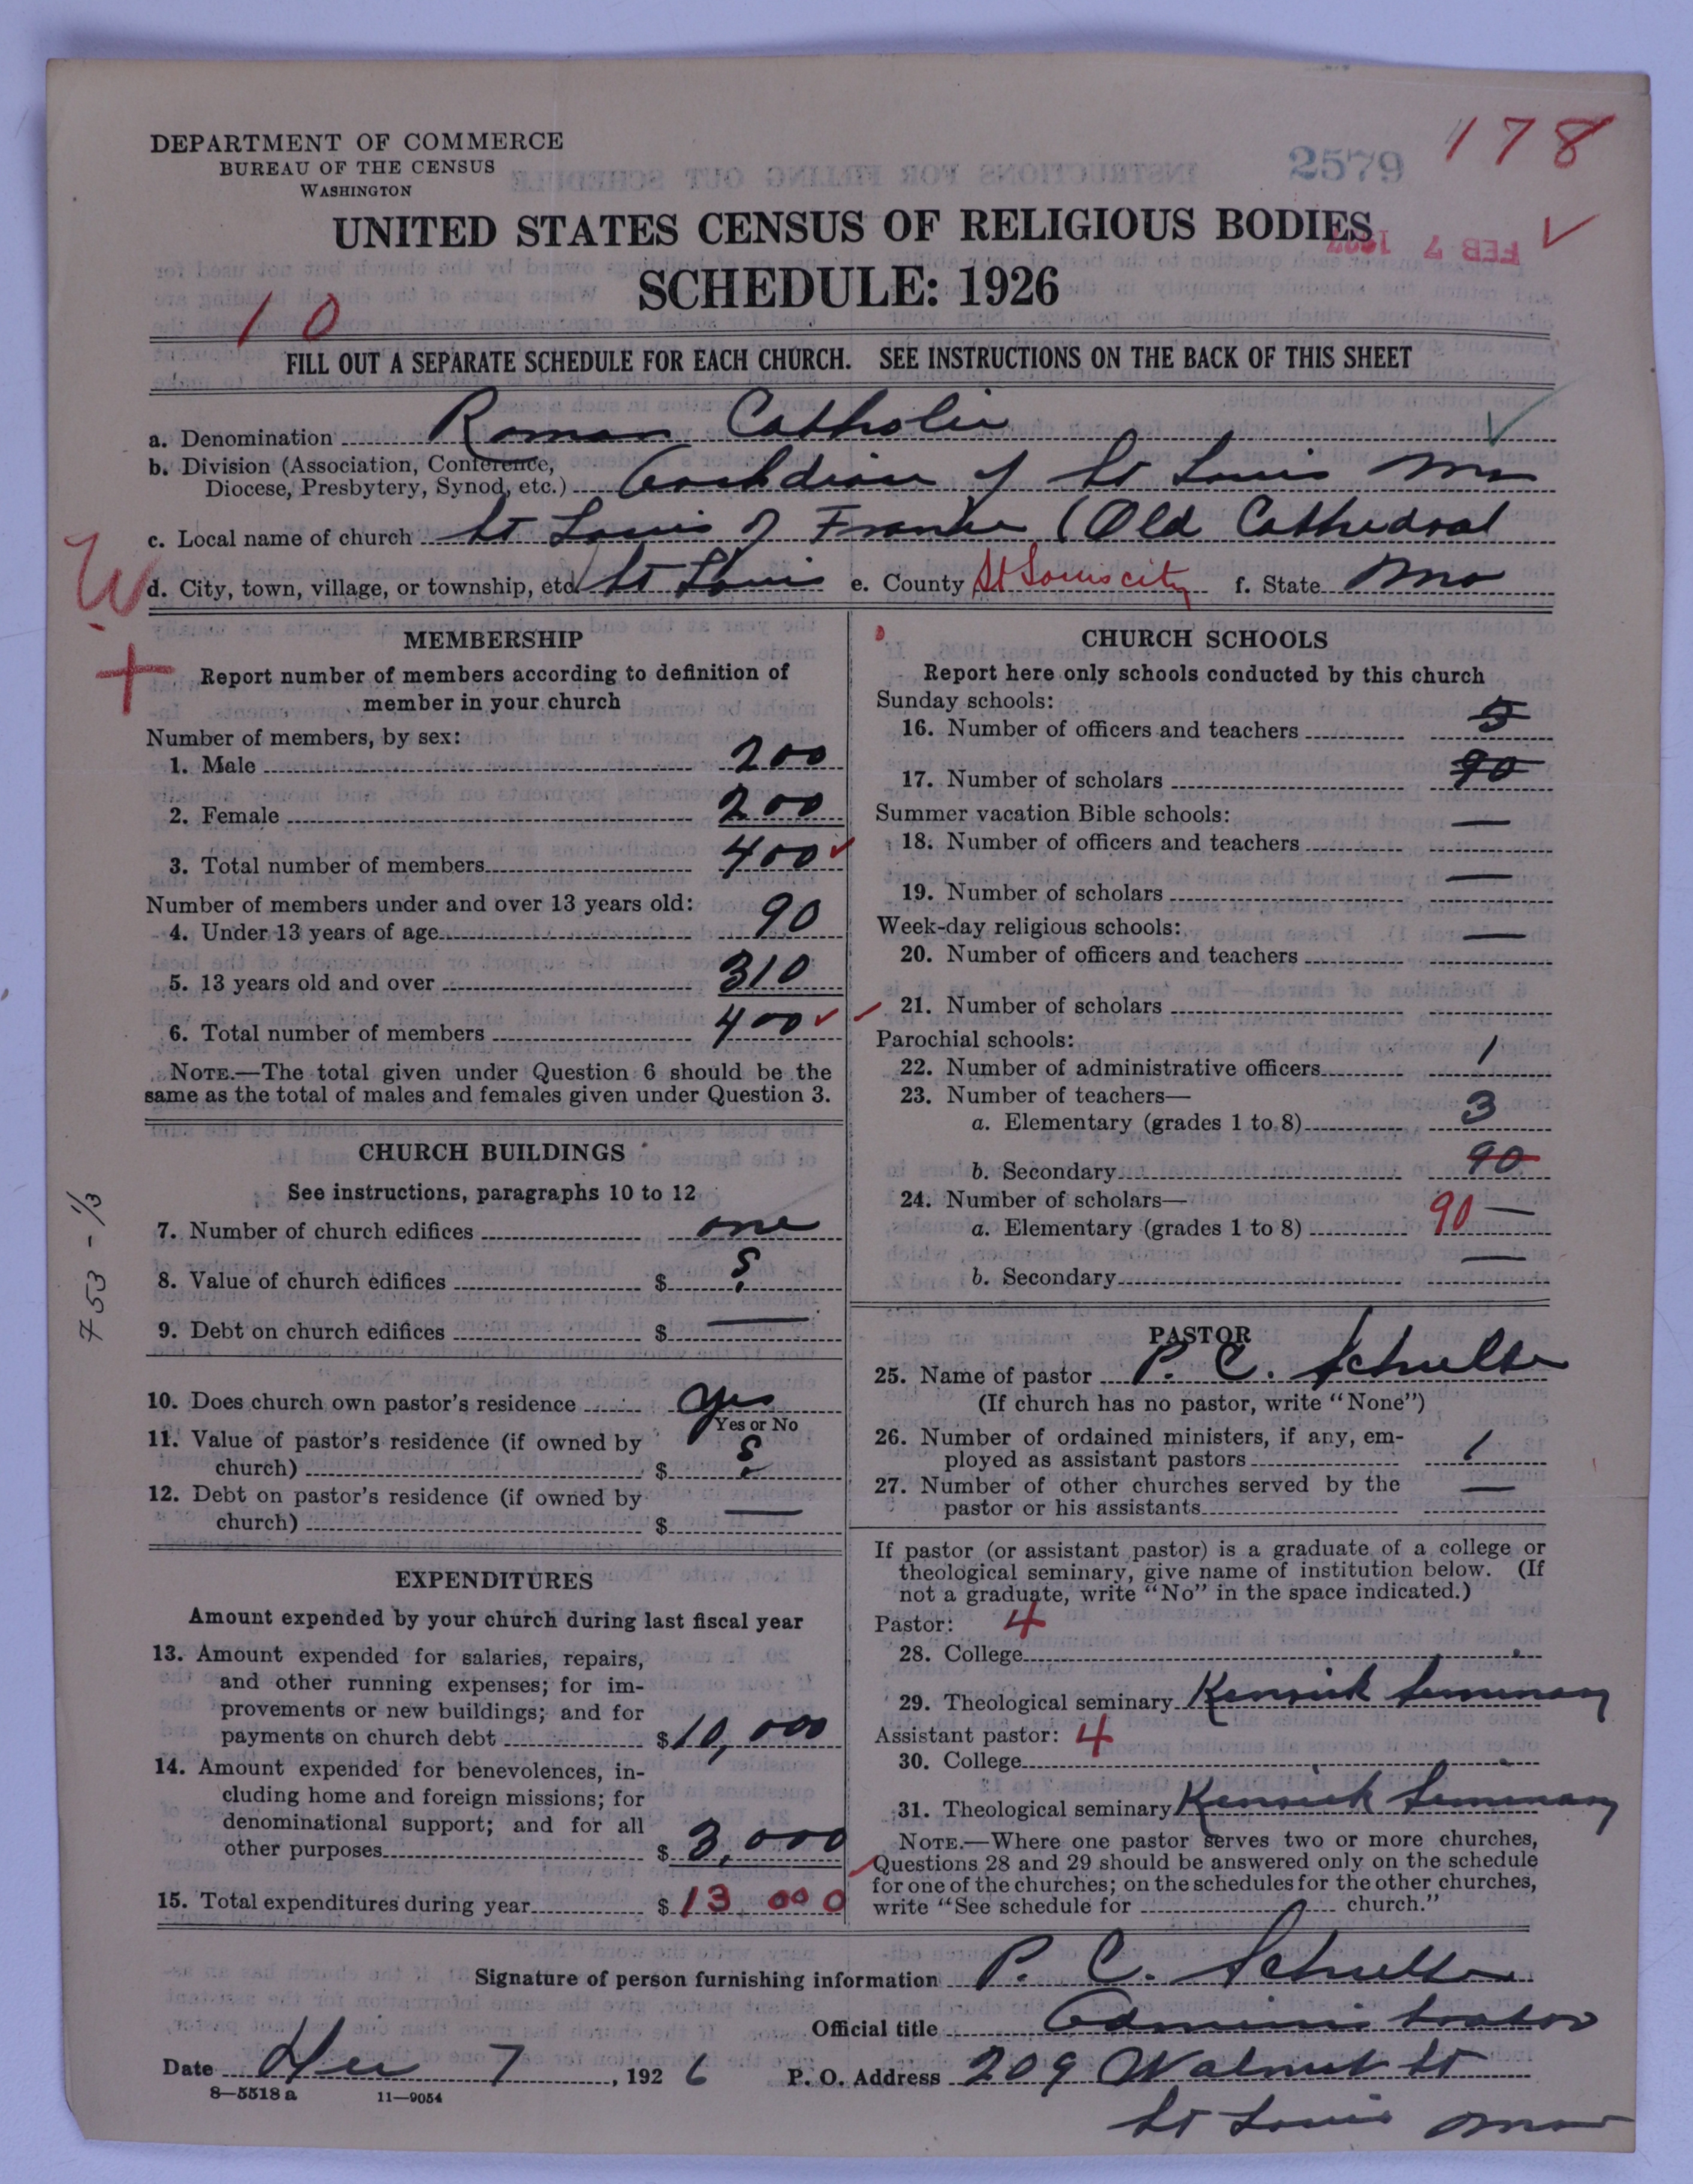 DEPARTMENT OF COMMERCE
BUREAU OF THE CENSUS
WASHINGTON
2579
178
UNITED STATES CENSUS OF RELIGIOUS BODIES
FEB 7
SCHEDULE: 1926
10
FILL OUT A SEPARATE SCHEDULE FOR EACH CHURCH. SEE INSTRUCTIONS ON THE BACK OF THIS SHEET
a. Denomination Roman Catholic
b. Division (Association, Conference, Diocese, Presbytery, Synod, etc.) Archdiocese of St Louis Mo
c. Local name of church St Louis of France (Old Cathedral
d. City, town, village, or township, etc. St Louis e. County St Louis city f. State Mo
W
+
MEMBERSHIP
Report number of members according to definition of
member in your church
Number of members, by sex:
1. Male 200
2. Female 200
3. Total number of members 400
Number of members under and over 13 years old:
4. Under 13 years of age 90
5. 13 years old and over 310
6. Total number of members 400
NOTE.—The total given under Question 6 should be the
same as the total of males and females given under Question 3.
CHURCH BUILDINGS
See instructions, paragraphs 10 to 12
7. Number of church edifices one
8. Value of church edifices $ ?
9. Debt on church edifices $ —
10. Does church own pastor's residence yes
Yes or No
11. Value of pastor's residence (if owned by
church) $ ?
12. Debt on pastor's residence (if owned by
church) $ —
753-1/3
EXPENDITURES
Amount expended by your church during last fiscal year
13. Amount expended for salaries, repairs,
and other running expenses; for im-
provements or new buildings; and for
payments on church debt $ 10,000
14. Amount expended for benevolences, in-
cluding home and foreign missions; for
denominational support; and for all
other purposes $ 3,000
15. Total expenditures during year $ 13 000
CHURCH SCHOOLS
Report here only schools conducted by this church
Sunday schools:
16. Number of officers and teachers 5
17. Number of scholars 90
Summer vacation Bible schools:
18. Number of officers and teachers —
19. Number of scholars —
Week-day religious schools:
20. Number of officers and teachers —
21. Number of scholars
Parochial schools:
22. Number of administrative officers 1
23. Number of teachers—
a. Elementary (grades 1 to 8) 3
b. Secondary 90
24. Number of scholars—
a. Elementary (grades 1 to 8) 90 —
b. Secondary —
PASTOR
25. Name of pastor P. C. Schulte
(If church has no pastor, write "None")
26. Number of ordained ministers, if any, em-
ployed as assistant pastors 1
27. Number of other churches served by the
pastor or his assistants —
If pastor (or assistant pastor) is a graduate of a college or
theological seminary, give name of institution below. (If
not a graduate, write "No" in the space indicated.)
Pastor: 4
28. College
29. Theological seminary Kenrick Seminary
Assistant pastor: 4
30. College
31. Theological seminary Kenrick Seminary
NOTE.—Where one pastor serves two or more churches,
Questions 28 and 29 should be answered only on the schedule
for one of the churches; on the schedules for the other churches,
write "See schedule for church."
Signature of person furnishing information P. C. Schulte
Official title Administrator
Date Dec 7, 1926 P. O. Address 209 Walnut St
8—5518a 11—9054
St Louis Mo